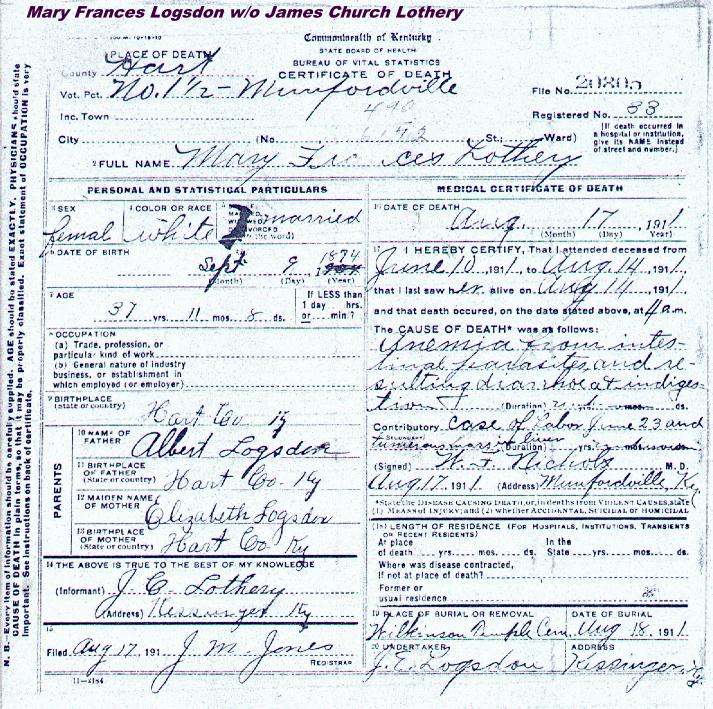 Mary Frances Logsdon w/o James Church Lothery
Commonwealth of Kentucky
STATE BOARD OF HEALTH
BUREAU OF VITAL STATISTICS
CERTIFICATE OF DEATH
PLACE OF DEATH
County Hart
Vot. Pct. No. 1½ - Munfordville
File No. 20805
Inc. Town 490
Registered No. 33
City (No. St.; Ward)
[If death occurred in a hospital or institution, give its NAME instead of street and number.]
2 FULL NAME Mary Frances Lothery
PERSONAL AND STATISTICAL PARTICULARS
3 SEX femal
4 COLOR OR RACE white
married
(Write the word)
6 DATE OF BIRTH
Sept 9 1874
(Month) (Day) (Year)
7 AGE
37 yrs. 11 mos. 8 ds.
If LESS than 1 day hrs. or min.?
8 OCCUPATION
(a) Trade, profession, or
particular kind of work
(b) General nature of industry
business, or establishment in
which employed (or employer)
9 BIRTHPLACE
(State or country) Hart Co Ky
PARENTS
10 NAME OF FATHER Albert Logsdon
11 BIRTHPLACE OF FATHER
(State or country) Hart Co. Ky
12 MAIDEN NAME OF MOTHER Elizabeth Logsdon
13 BIRTHPLACE OF MOTHER
(State or country) Hart Co Ky
14 THE ABOVE IS TRUE TO THE BEST OF MY KNOWLEDGE
(Informant) J. C. Lothery
(Address) Kessinger Ky
15
Filed Aug 17, 191 J. M. Jones
REGISTRAR
11-2184
MEDICAL CERTIFICATE OF DEATH
16 DATE OF DEATH
Aug. 17, 1911
(Month) (Day) (Year)
17 I HEREBY CERTIFY, That I attended deceased from
June 10, 1911, to Aug. 14, 1911,
that I last saw her alive on Aug 14, 1911,
and that death occured, on the date stated above, at 4 a.m.
The CAUSE OF DEATH* was as follows:
Anemia from intes-
tinal parasites and re-
sulting diarrhoea & indiges-
tion (Duration) yrs. mos. ds.
Contributory Case of labor June 23 and
(Secondary) liver (Duration) yrs.
(Signed) W. F. Nichols M. D.
Aug. 17, 1911 (Address) Munfordville Ky
*State the DISEASE CAUSING DEATH, or, in deaths from VIOLENT CAUSES, state
(1) MEANS OF INJURY; and (2) whether ACCIDENTAL, SUICIDAL OR HOMICIDAL
18 LENGTH OF RESIDENCE (FOR HOSPITALS, INSTITUTIONS, TRANSIENTS
OR RECENT RESIDENTS)
At place In the
of death yrs. mos. ds. State yrs. mos. ds.
Where was disease contracted,
if not at place of death?
Former or
usual residence
19 PLACE OF BURIAL OR REMOVAL DATE OF BURIAL
Wilkinson Temple Cem. Aug 18, 1911
20 UNDERTAKER ADDRESS
J. E. Logsdon Kessinger, Ky
N. B.—Every item of information should be carefully supplied. AGE should be stated EXACTLY. PHYSICIANS should state
CAUSE OF DEATH in plain terms, so that it may be properly classified. Exact statement of OCCUPATION is very
important. See instructions on back of certificate.